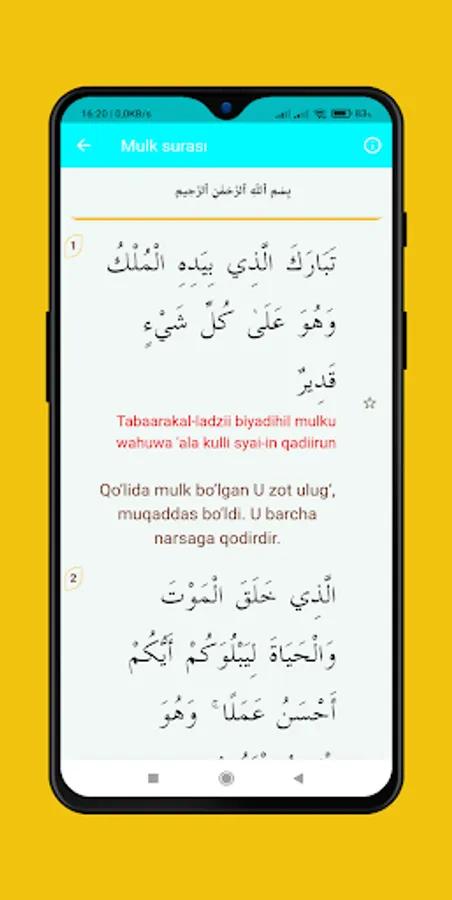 16:20 | 0,0KB/s 83%
Mulk surası
بِسْمِ ٱللَّهِ ٱلرَّحْمَٰنِ ٱلرَّحِيمِ
1
تَبَارَكَ الَّذِي بِيَدِهِ الْمُلْكُ
وَهُوَ عَلَىٰ كُلِّ شَيْءٍ
قَدِيرٌ
Tabaarakal-ladzii biyadihil mulku
wahuwa 'ala kulli syai-in qadiirun
Qo‘lida mulk bo‘lgan U zot ulug‘,
muqaddas bo‘ldi. U barcha
narsaga qodirdir.
2
الَّذِي خَلَقَ الْمَوْتَ
وَالْحَيَاةَ لِيَبْلُوَكُمْ أَيُّكُمْ
أَحْسَنُ عَمَلًا ۚ وَهُوَ